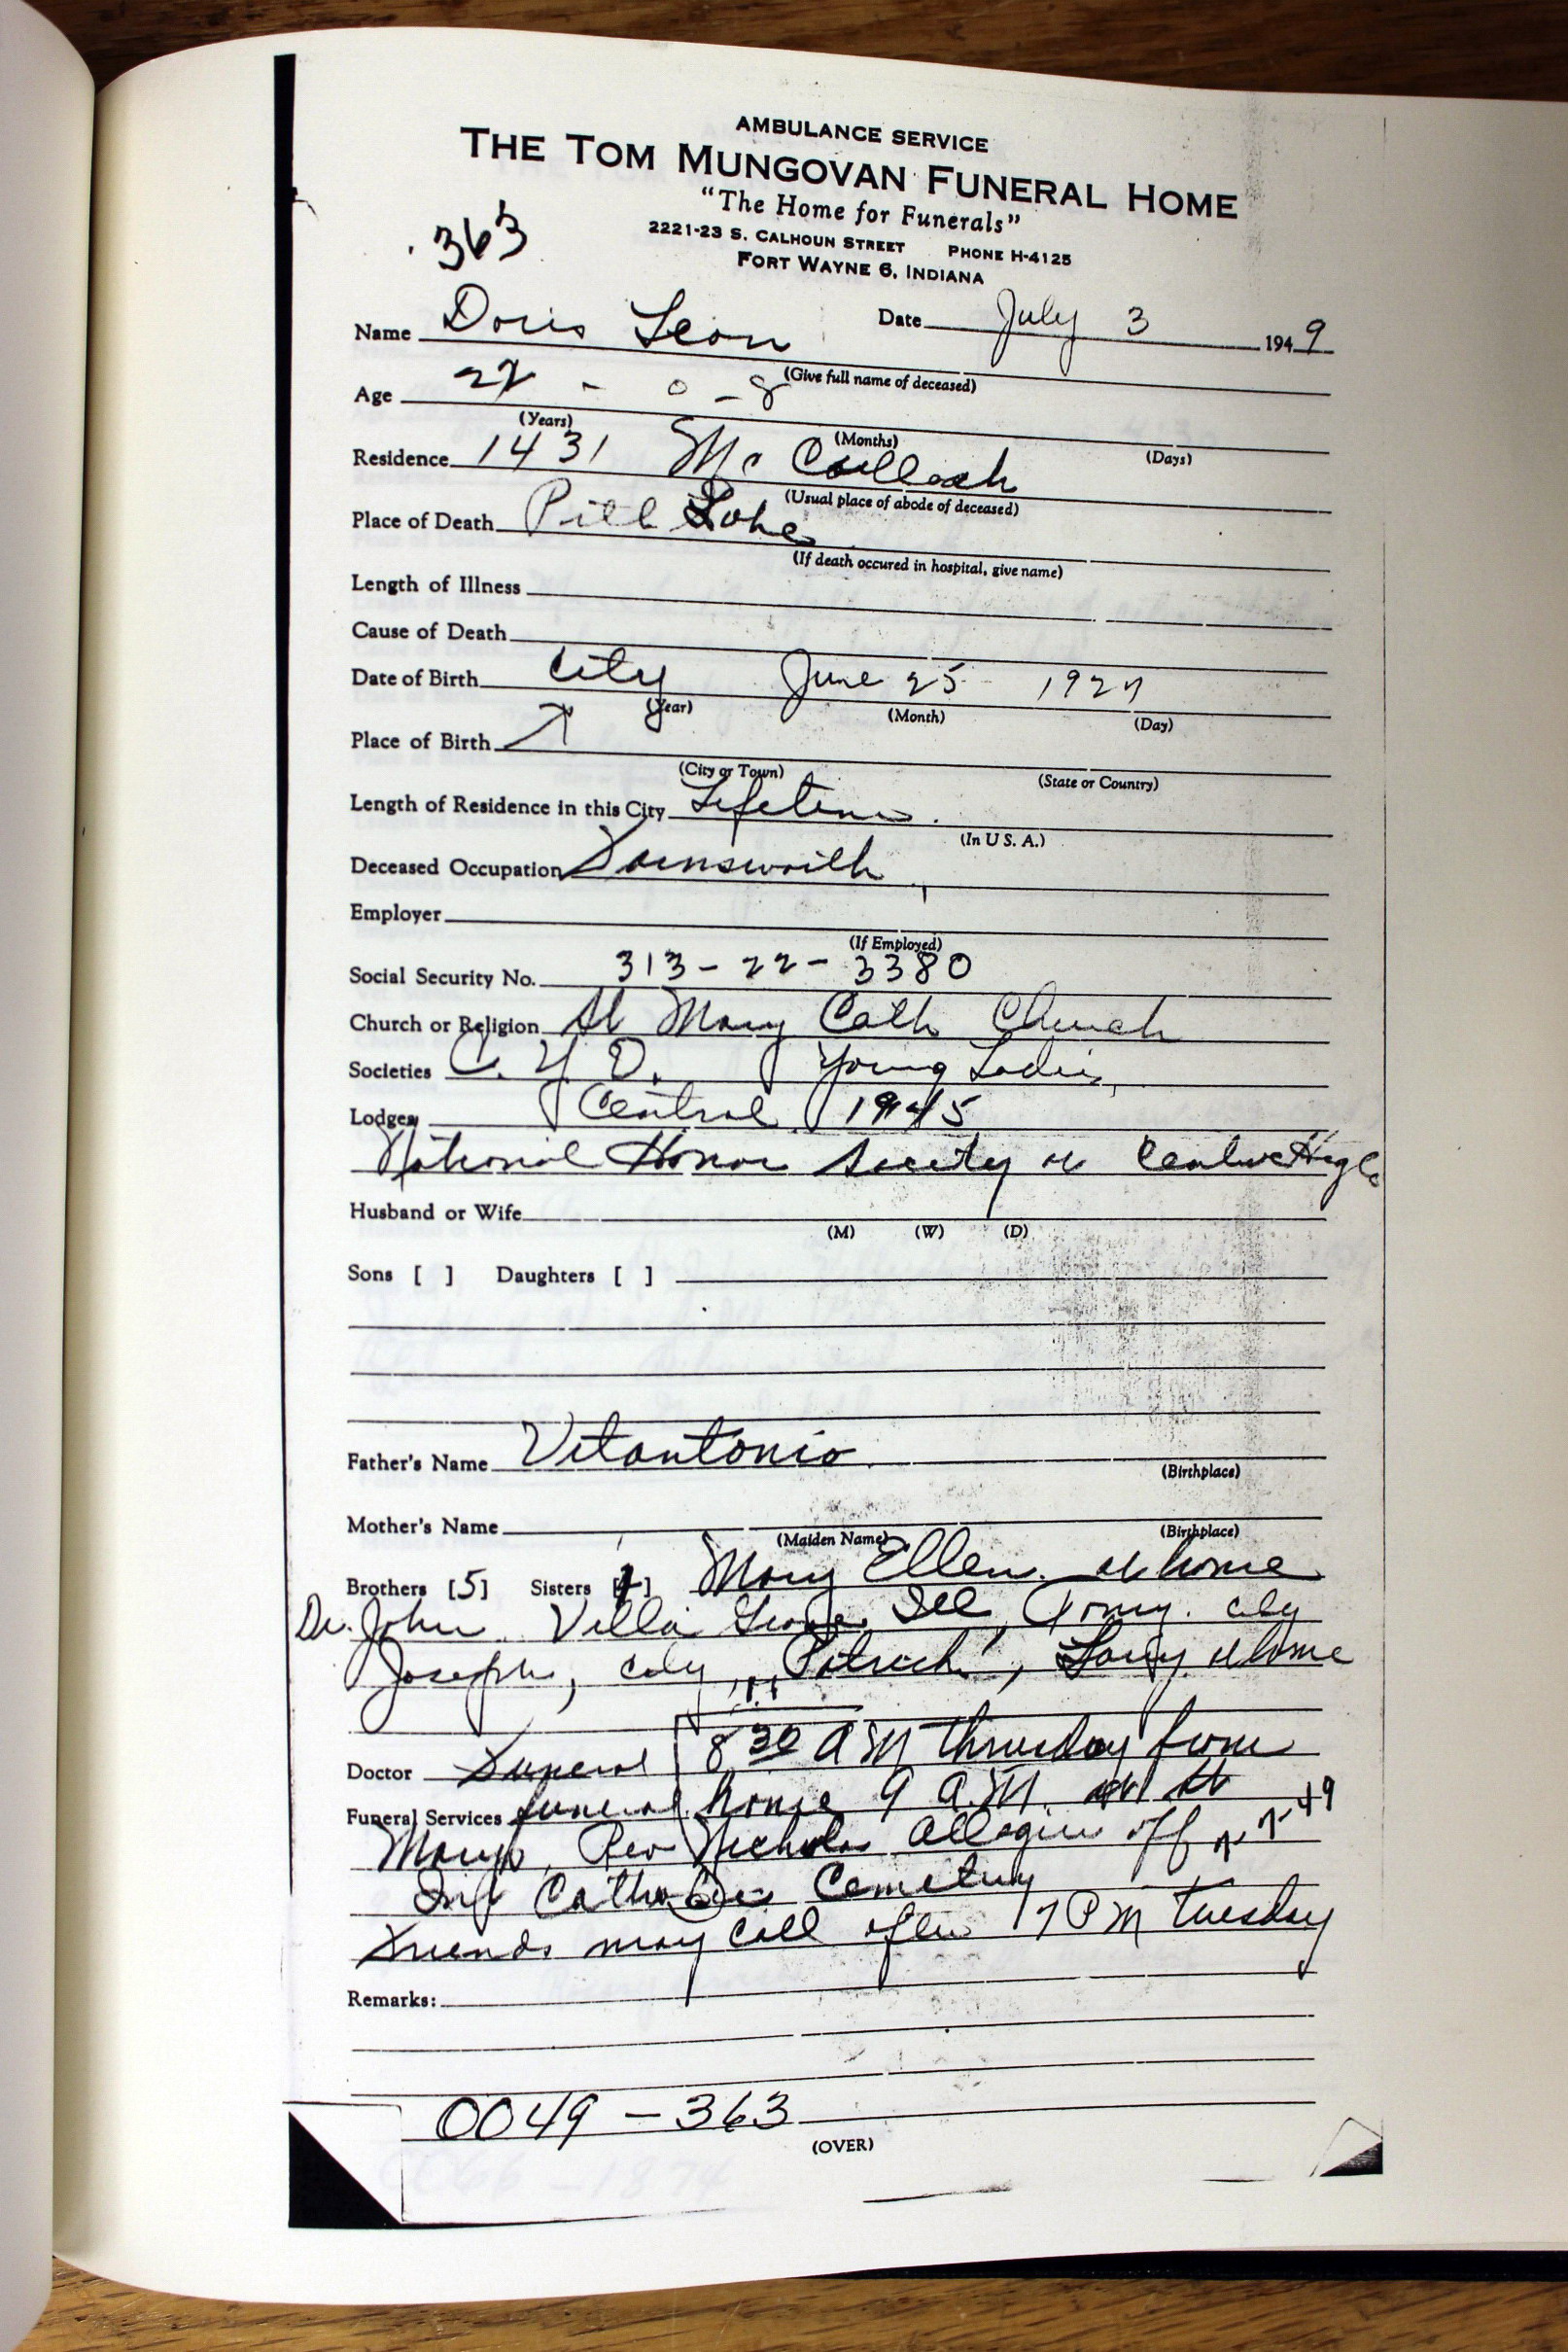 AMBULANCE SERVICE
THE TOM MUNGOVAN FUNERAL HOME
"The Home for Funerals"
2221-23 S. CALHOUN STREET PHONE H-4125
FORT WAYNE 6, INDIANA
363
Name Doris Leon Date July 3 1949
(Give full name of deceased)
Age 22 - 0 - 8
(Years) (Months) (Days)
Residence 1431 Mc Culloch
(Usual place of abode of deceased)
Place of Death Lake
(If death occured in hospital, give name)
Length of Illness
Cause of Death
Date of Birth City June 25 1927
(Year) (Month) (Day)
Place of Birth
(City or Town) (State or Country)
Length of Residence in this City Lifetime.
(In U S. A.)
Deceased Occupation
Employer
(If Employed)
Social Security No. 313-22-3380
Church or Religion St Mary Cath Church
Societies C. Y O. Young Ladies,
Lodges Central 1945
National Honor Society at Central High
Husband or Wife
(M) (W) (D)
Sons [ ] Daughters [ ]
Father's Name Vitantonio
(Birthplace)
Mother's Name
(Maiden Name) (Birthplace)
Brothers [5] Sisters [1] Mary Ellen. at home
Dr. John. Villa Ill, Tony. city
Joseph, city, Patrick, Larry at home
Doctor Funeral 8 30 A M thursday from
Funeral Services funeral home 9 A.M. at St
Marys, Rev Nicholas off 7-7-49
Catholic Cemetery
Friends may call after 7 P M Tuesday
Remarks:
0049 - 363
(OVER)